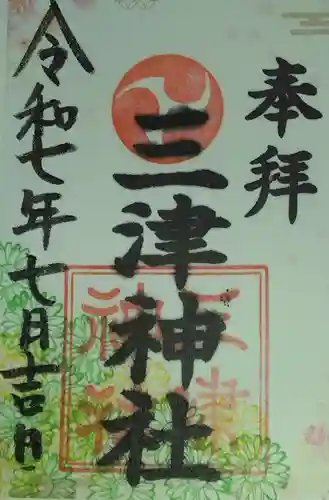 奉拝
三津神社
令和七年七月吉日